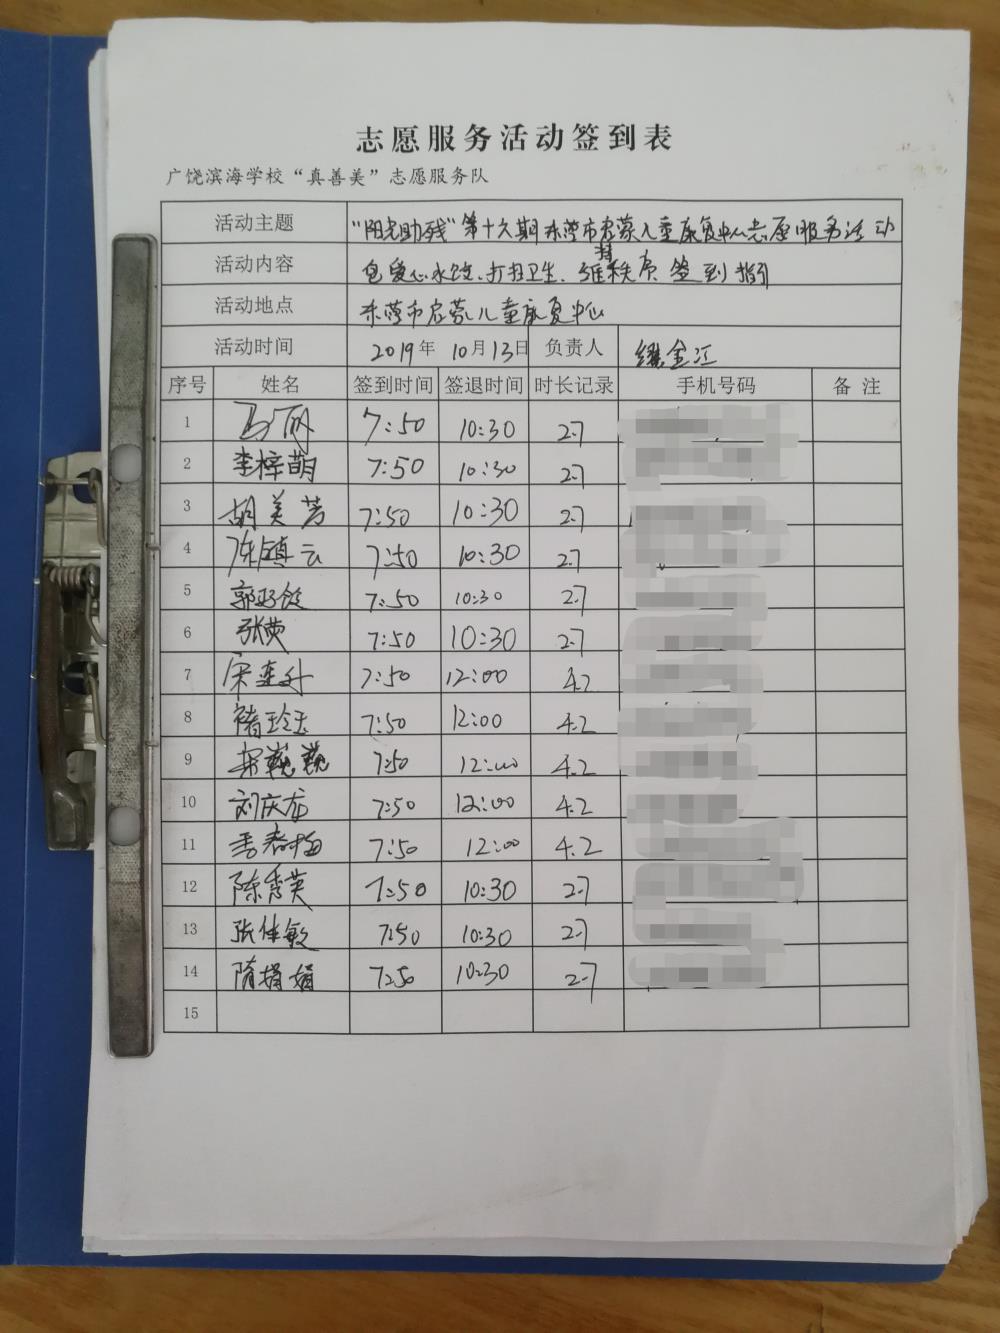 志愿服务活动签到表
广饶滨海学校“真善美”志愿服务队
活动主题 “阳光助残”第十六期东营市启蒙儿童康复中心志愿服务活动
活动内容 包爱心水饺、打扫卫生、维持秩序 签到指引
活动地点 东营市启蒙儿童康复中心
活动时间 2019年 10月13日 负责人 金江
序号 姓名 签到时间 签退时间 时长记录 手机号码 备 注
1 马丽 7:50 10:30 2.7
2 李梓萌 7:50 10:30 2.7
3 胡美芳 7:50 10:30 2.7
4 陈镇云 7:50 10:30 2.7
5 郭 7:50 10:30 2.7
6 张荧 7:50 10:30 2.7
7 宋连升 7:50 12:00 4.2
8 褚玲玉 7:50 12:00 4.2
9 巍巍 7:50 12:00 4.2
10 刘庆龙 7:50 12:00 4.2
11 李春梅 7:50 12:00 4.2
12 陈秀英 7:50 10:30 2.7
13 张佳敏 7:50 10:30 2.7
14 隋娟娟 7:50 10:30 2.7
15